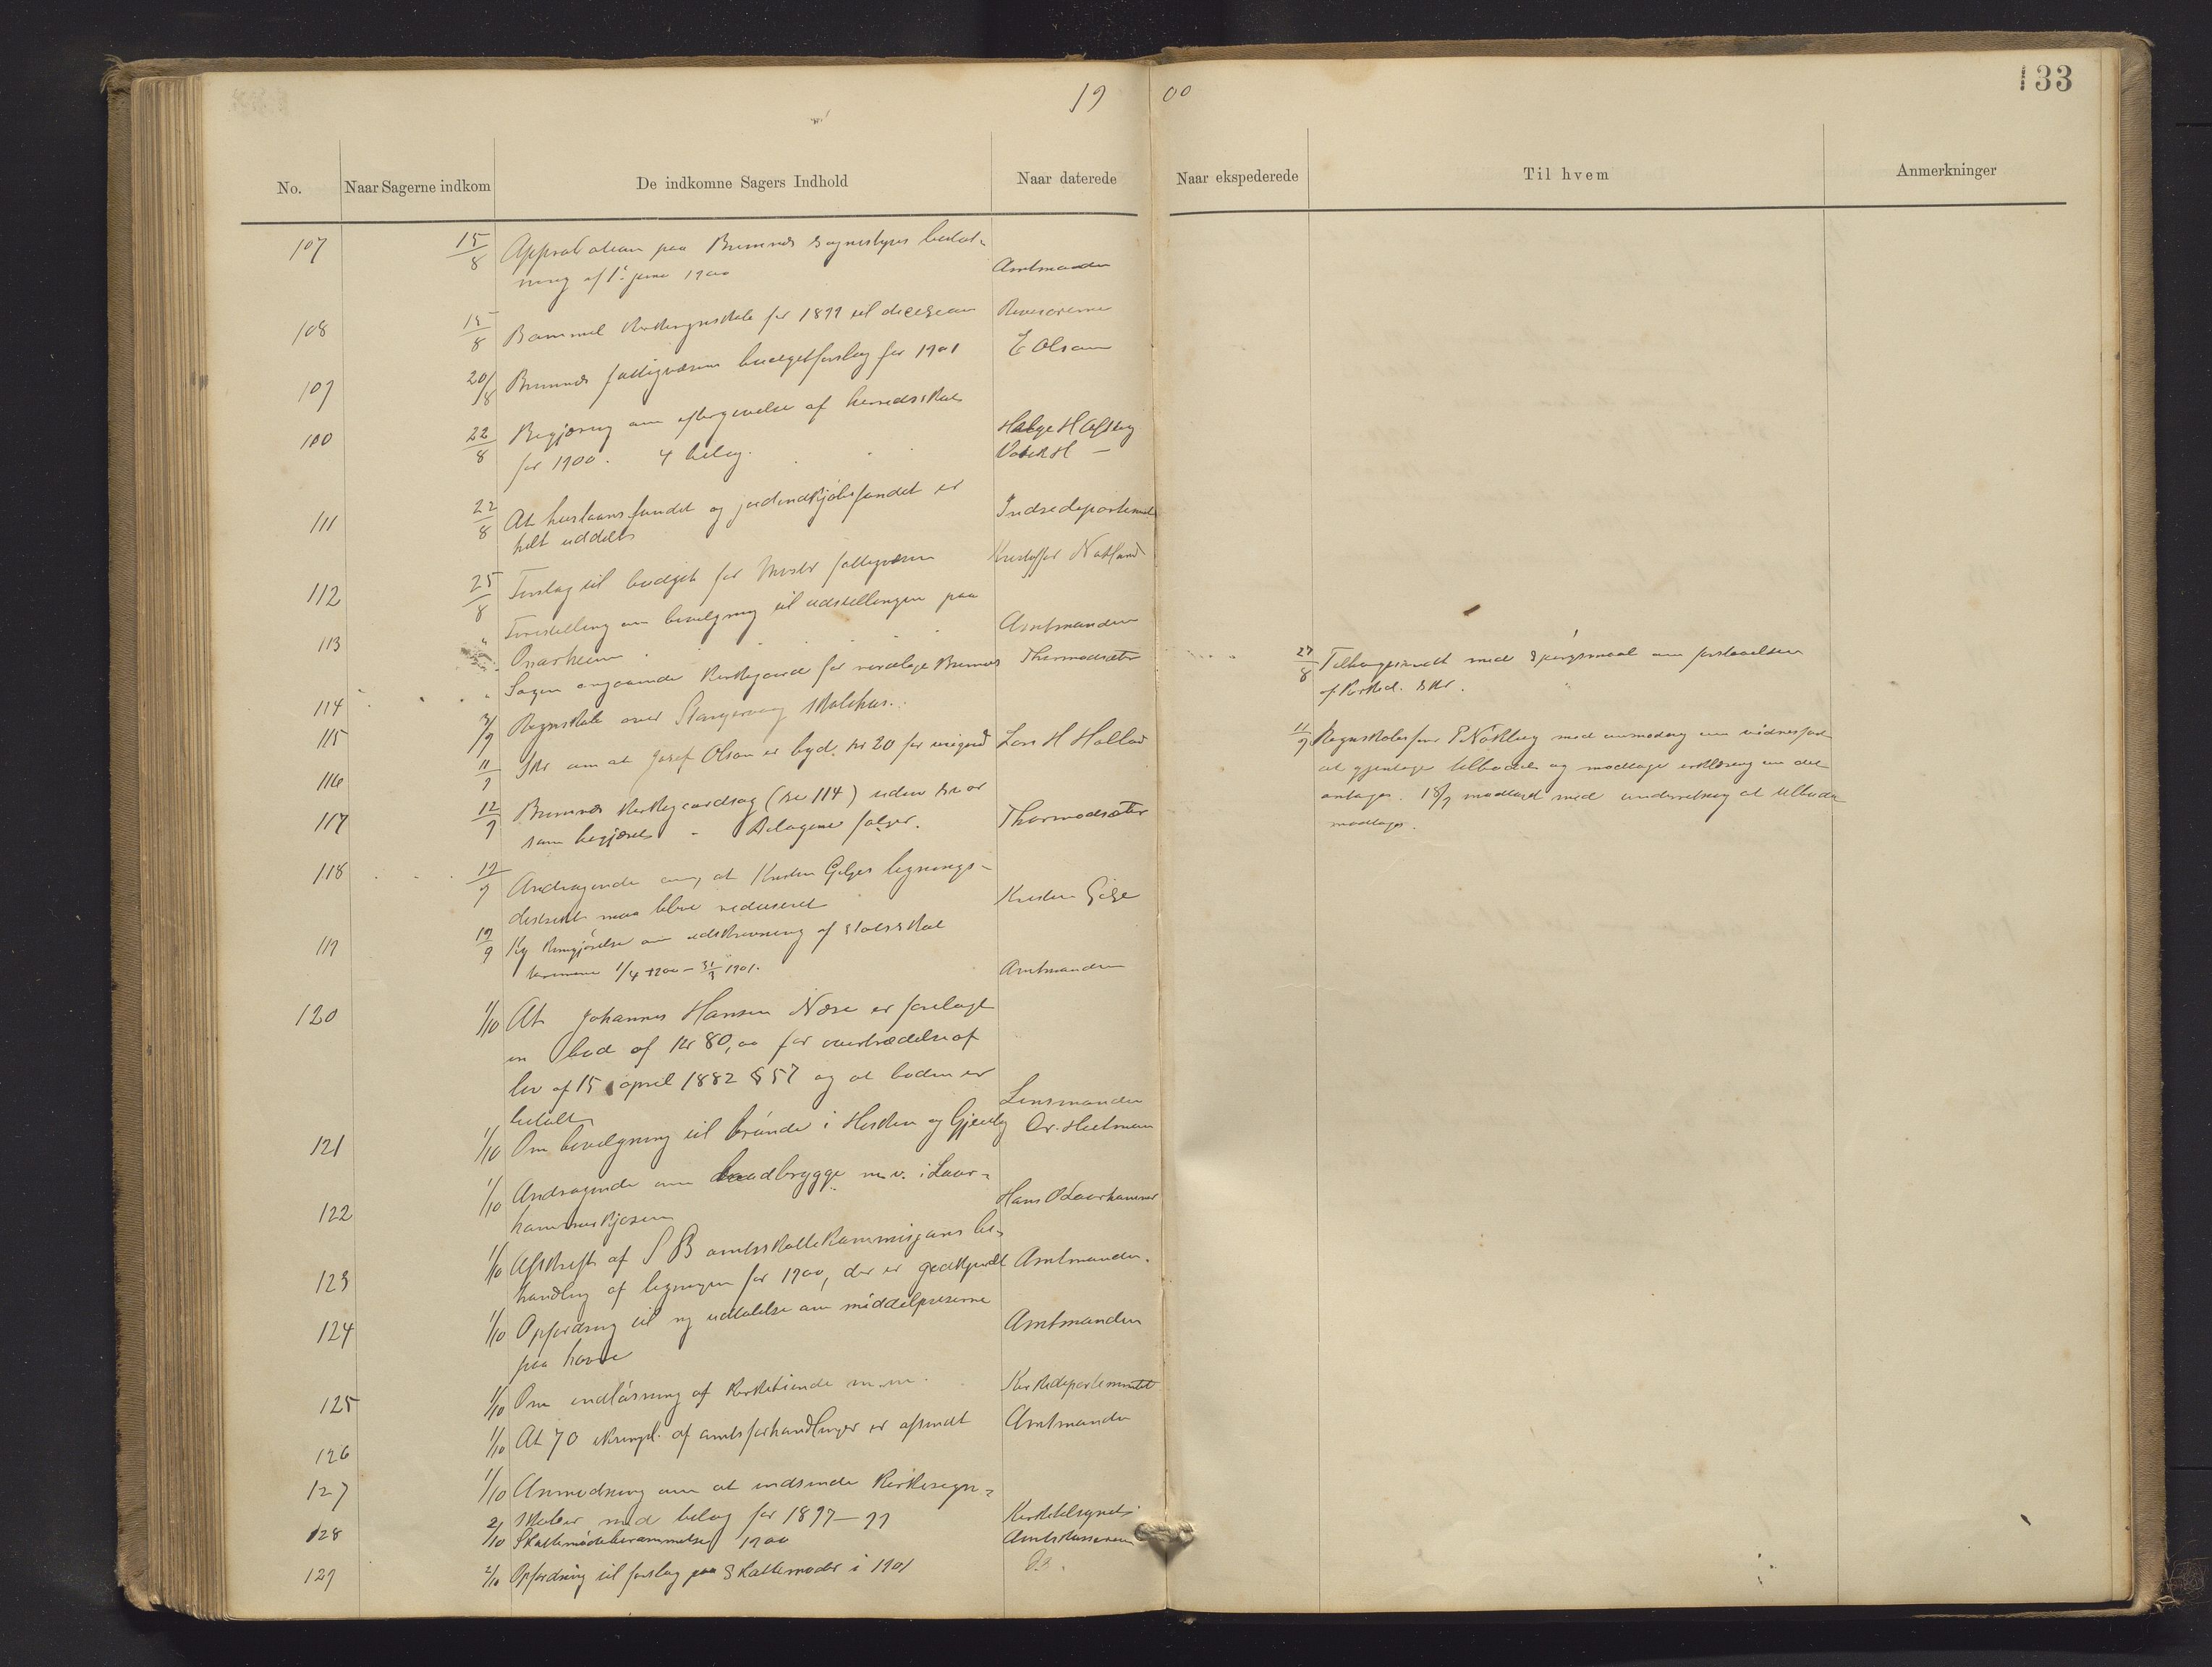 1900
133
No. Naar Sagerne indkom De indkomne Sagers Indhold Naar daterede Naar ekspederede Til hvem Anmerkninger
107 15/8 Approbation paa Bremnes sognestyres beslut-
ning af 1. juni 1900 Amtmanden
108 15/8 Bømmel Kirkeregnskab for 1899 til decision Revisorerne
109 20/8 Bremnes fattigvæsens budgetforslag for 1901 E Olsen
110 22/8 Begjæring om eftergivelse af herredsskat Helge H Økland
for 1900. 4 bilag.
111 22/8 At huslaansfondet og jordindkjøbsfondet er Indredepartementet
helt uddelt
112 25/8 Forslag til budget for Moster fattigvæsen Kristoffer Notland
113 " Forestilling om bevilgning til udstillingen paa
Onarheim Amtmanden
114 " Sagen angaaende Kirkegaard for nordlige Bremnes Thormodsæter 27/8 Tilbagesendt med Spørgsmaal om forstaaelsen
af Kirked. skr.
115 3/9 Regnskab over Stangervaag skolehus.
116 11/9 Skr om at Josef Olson er byd. kr 20 for Lars H Holland 11/9 Regnskabsfører P Nökling med anmodning om
at gjentage tilbudet og modtage erklæring om det
antages. 18/9 modtaget med underretning at tilbudet
modtages.
117 12/9 Bremnes Kirkegaardsag (se 114) uden svar
som begjæret - Bilagene følger. Thormodsæter
118 19/9 Andragende om, at Kristen Giljes lignings-
distrikt maa blive reduseret Kristen Gilje
119 19/9 Kg Kungjörelse om udskrivning af statsskat
terminen 1/4 1900 - 31/3 1901. Amtmanden
120 1/10 At Johannes Hansen Næse er forelagt
en bod af Kr 80,00 for overtrædelse af
lov af 15 april 1882 § 57 og at boden er
betalt Lensmanden
121 1/10 Om bevilgning til brönde i Hisken og Gjeitöy Dr. Heitman
122 1/10 Andragende om landbrygge m.v. i Laur-
hammerkjosen Hans O Laurhammer
123 1/10 Afskrift af S B amtsskattekommisjons be-
handling af ligningen for 1900, der er godkjendt Amtmanden.
124 1/10 Opfordring til ny udtalelse om middelpriserne
paa havre Amtmanden
125 1/10 Om indlösning af Kirketiende m.m. Kirkedepartementet
126 1/10 At 70 eksempl. af amtsforhandlinger er afsendt Amtmanden
127 1/10 Anmodning om at indsende Kirkeregn-
skaber med bilag for 1897-99 Kirketilsynet
128 2/10 Skattemödeberammelse 1900 Amtskasseren
129 2/10 Opfordring til forslag paa Skattemöder i 1901 Ds.